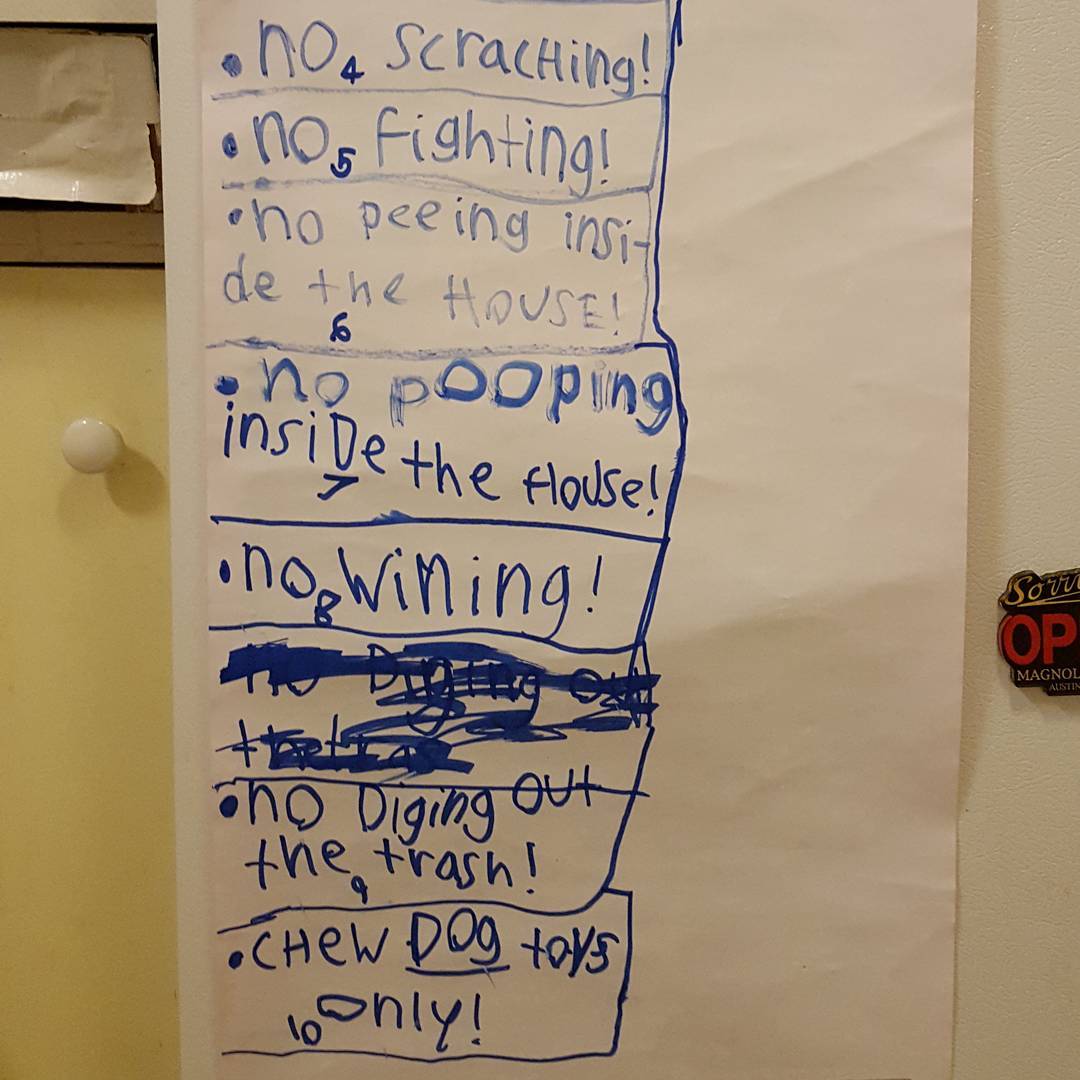 • no 4 scracHing!
• no 5 Fighting!
• no peeing insi-
de the HOUSE!
6
• no pooping
insiDe the House!
7
• no 8 wining!
no Diging out
the tras
• no Diging out
the 9 trash!
• CHeW DOg toys
10 only!
Sorr
OP
MAGNOL
AUSTIN